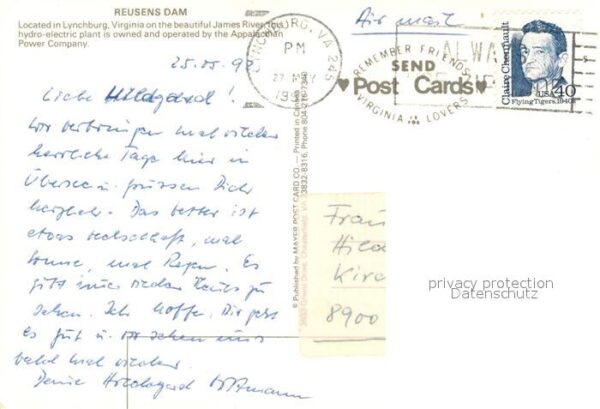 REUSENS DAM
Located in Lynchburg, Virginia on the beautiful James River, this
hydro-electric plant is owned and operated by the Appalachian
Power Company.
Air mail
LYNCHBURG, VA 245
PM
27 MAY
REMEMBER FRIENDS
SEND
Post Cards
VIRGINIA LOVERS
ALWAYS
Claire Chennault
Flying Tigers, 1940s
USA 40
25.05.92
Liebe Hildegard!
Wir verbringen mal wieder
herrliche Tage hier in
Übersee u. grüssen Dich
herzlich. Das Wetter ist
etwas wechselhaft, mal
Sonne, mal Regen. Es
gibt immer wieder Neues zu
sehen. Ich hoffe, Dir geht
es gut u. wir sehen uns
bald mal wieder.
Deine Hildegard
© Published by MAYER POST CARD CO. — Printed in Canada
Frau
Hilde
Kirc
8900
privacy protection
Datenschutz